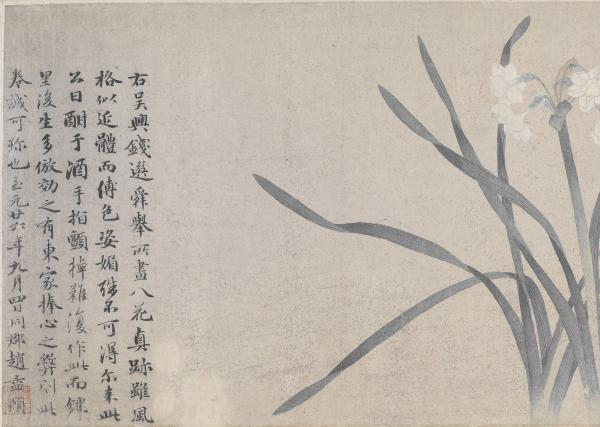 右吳興錢選舜舉所畫八花真跡雖風
格似近體而傅色姿媚殊不可得尔来此
公日酣于酒手指顫掉難復作此而鄉
里後生多倣効之有東家捧心之弊則此
卷誠可珍也至元廿六年九月四日同郡趙孟頫